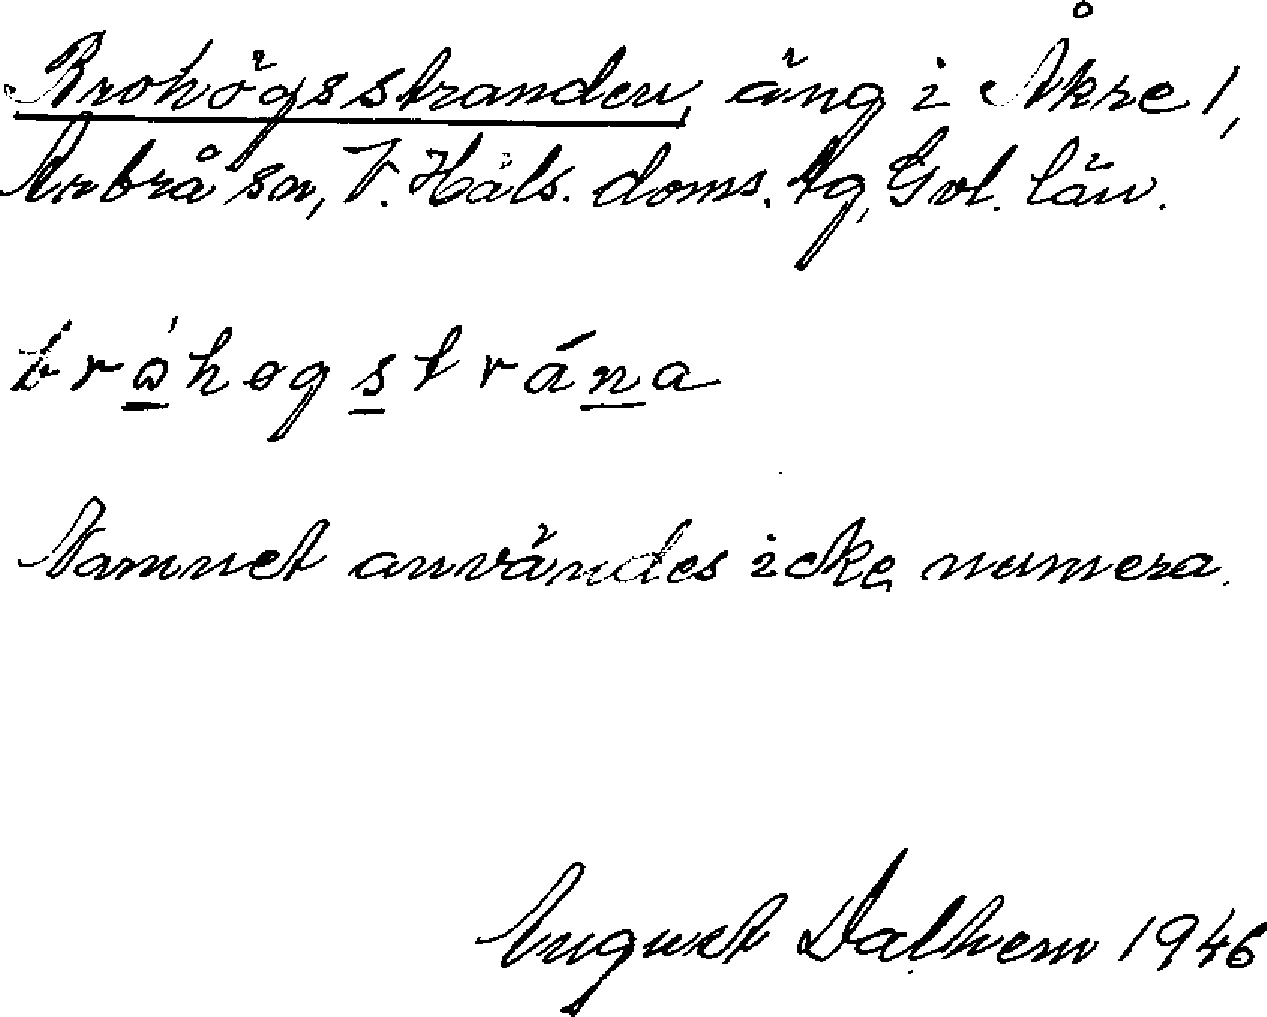 Brohögsstranden, äng i Åkre 1,
Arbrå sn, V. Häls. doms. tg, Gvl. län.
bró̱høgs̱tráṉa
Namnet användes icke numera.
August Dalhem 1946